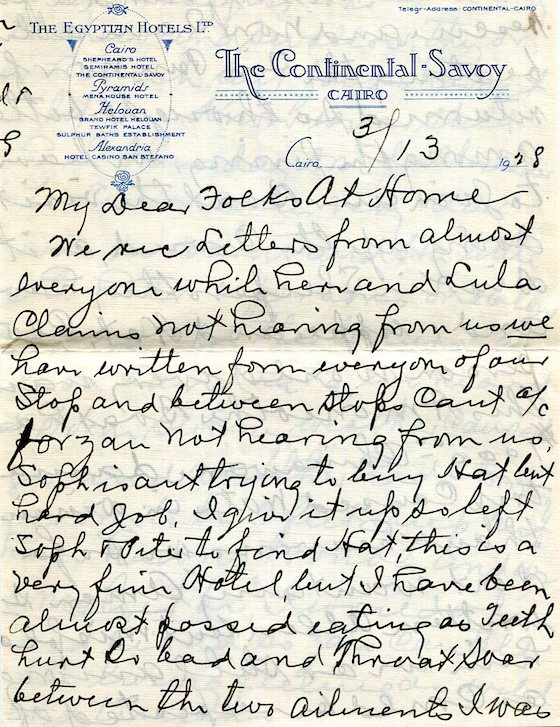 Telegr-Address: CONTINENTAL-CAIRO
THE EGYPTIAN HOTELS LTD
Cairo
SHEPHEARD'S HOTEL
SEMIRAMIS HOTEL
THE CONTINENTAL-SAVOY
Pyramids
MENA HOUSE HOTEL
Helouan
GRAND HOTEL HELOUAN
TEWFIK PALACE
SULPHUR BATHS ESTABLISHMENT
Alexandria
HOTEL CASINO SAN STEFANO
The Continental-Savoy
CAIRO
Cairo 3/13 1928
My Dear Folks At Home
We rec Letters from almost
everyone while here and Lula
Claims not hearing from us we
have written form everyone of our
Stop and between stops Cant a/c
for you not hearing from us,
Soph is out trying to buy Hat but
hard Job, I give it up so left
Soph & to find Hat, this is a
very fine Hotel, but I have been
almost passed eating as Teeth
hurt so bad and Throat Soar
between the two ailments I was